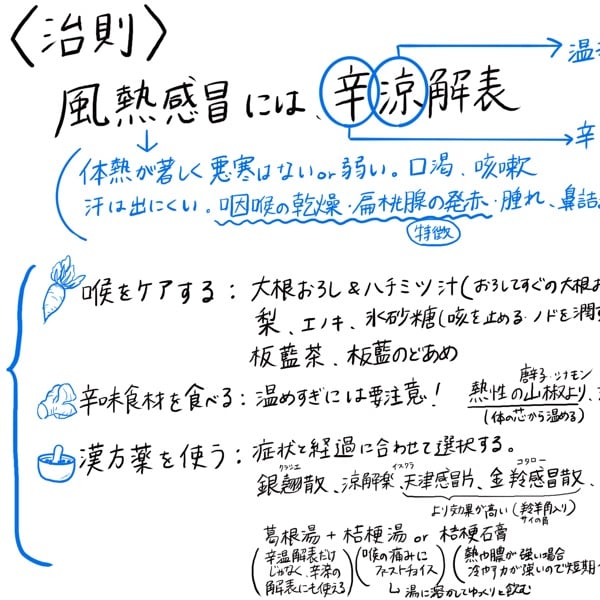 〈治則〉
温
風熱感冒には、辛涼解表
辛
体熱が著しく悪寒はない or 弱い。口渇、咳嗽
汗は出にくい。咽喉の乾燥・扁桃腺の発赤・腫れ、鼻詰
特徴
喉をケアする：大根おろし&ハチミツ汁(おろしてすぐの大根お
梨、エノキ、氷砂糖(咳を止める・ノドを潤す
板藍茶、板藍のどあめ
唐辛子・シナモン
辛味食材を食べる：温めすぎには要注意! 熱性の山椒より、
(体の芯から温める)
漢方薬を使う：症状と経過に合わせて選択する。
クラシエ イスクラ コタロー
銀翹散、涼解楽、天津感冒片、金羚感冒散、
より効果が高い(羚羊角入り)
サイの角
葛根湯+桔梗湯 or 桔梗石膏
(辛温解表だけ (喉の痛みに (熱や膿が強い場合
じゃなく、辛涼の ファストチョイス) 冷やす力が強いので短期
解表にも使える)
湯に溶かしてゆっくりと飲む